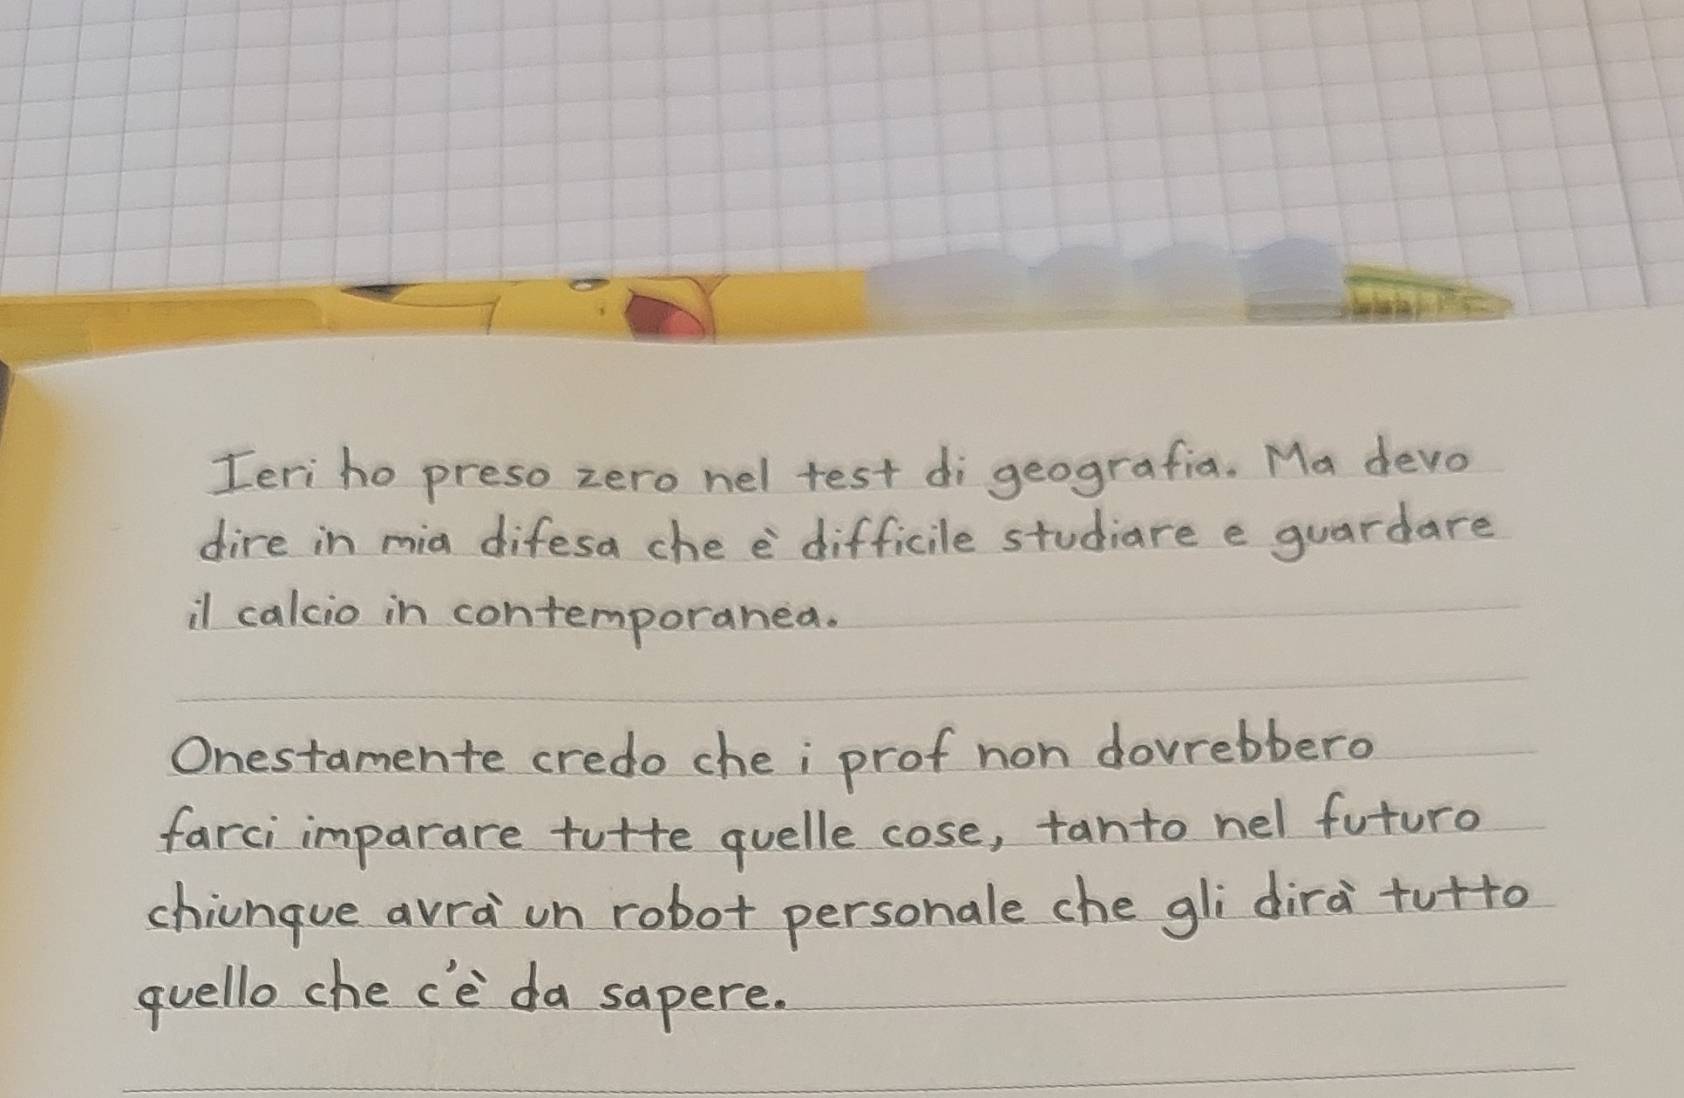 Ieri ho preso zero nel test di geografia. Ma devo
dire in mia difesa che è difficile studiare e guardare
il calcio in contemporanea.
Onestamente credo che i prof non dovrebbero
farci imparare tutte quelle cose, tanto nel futuro
chiunque avrà un robot personale che gli dirà tutto
quello che c'è da sapere.